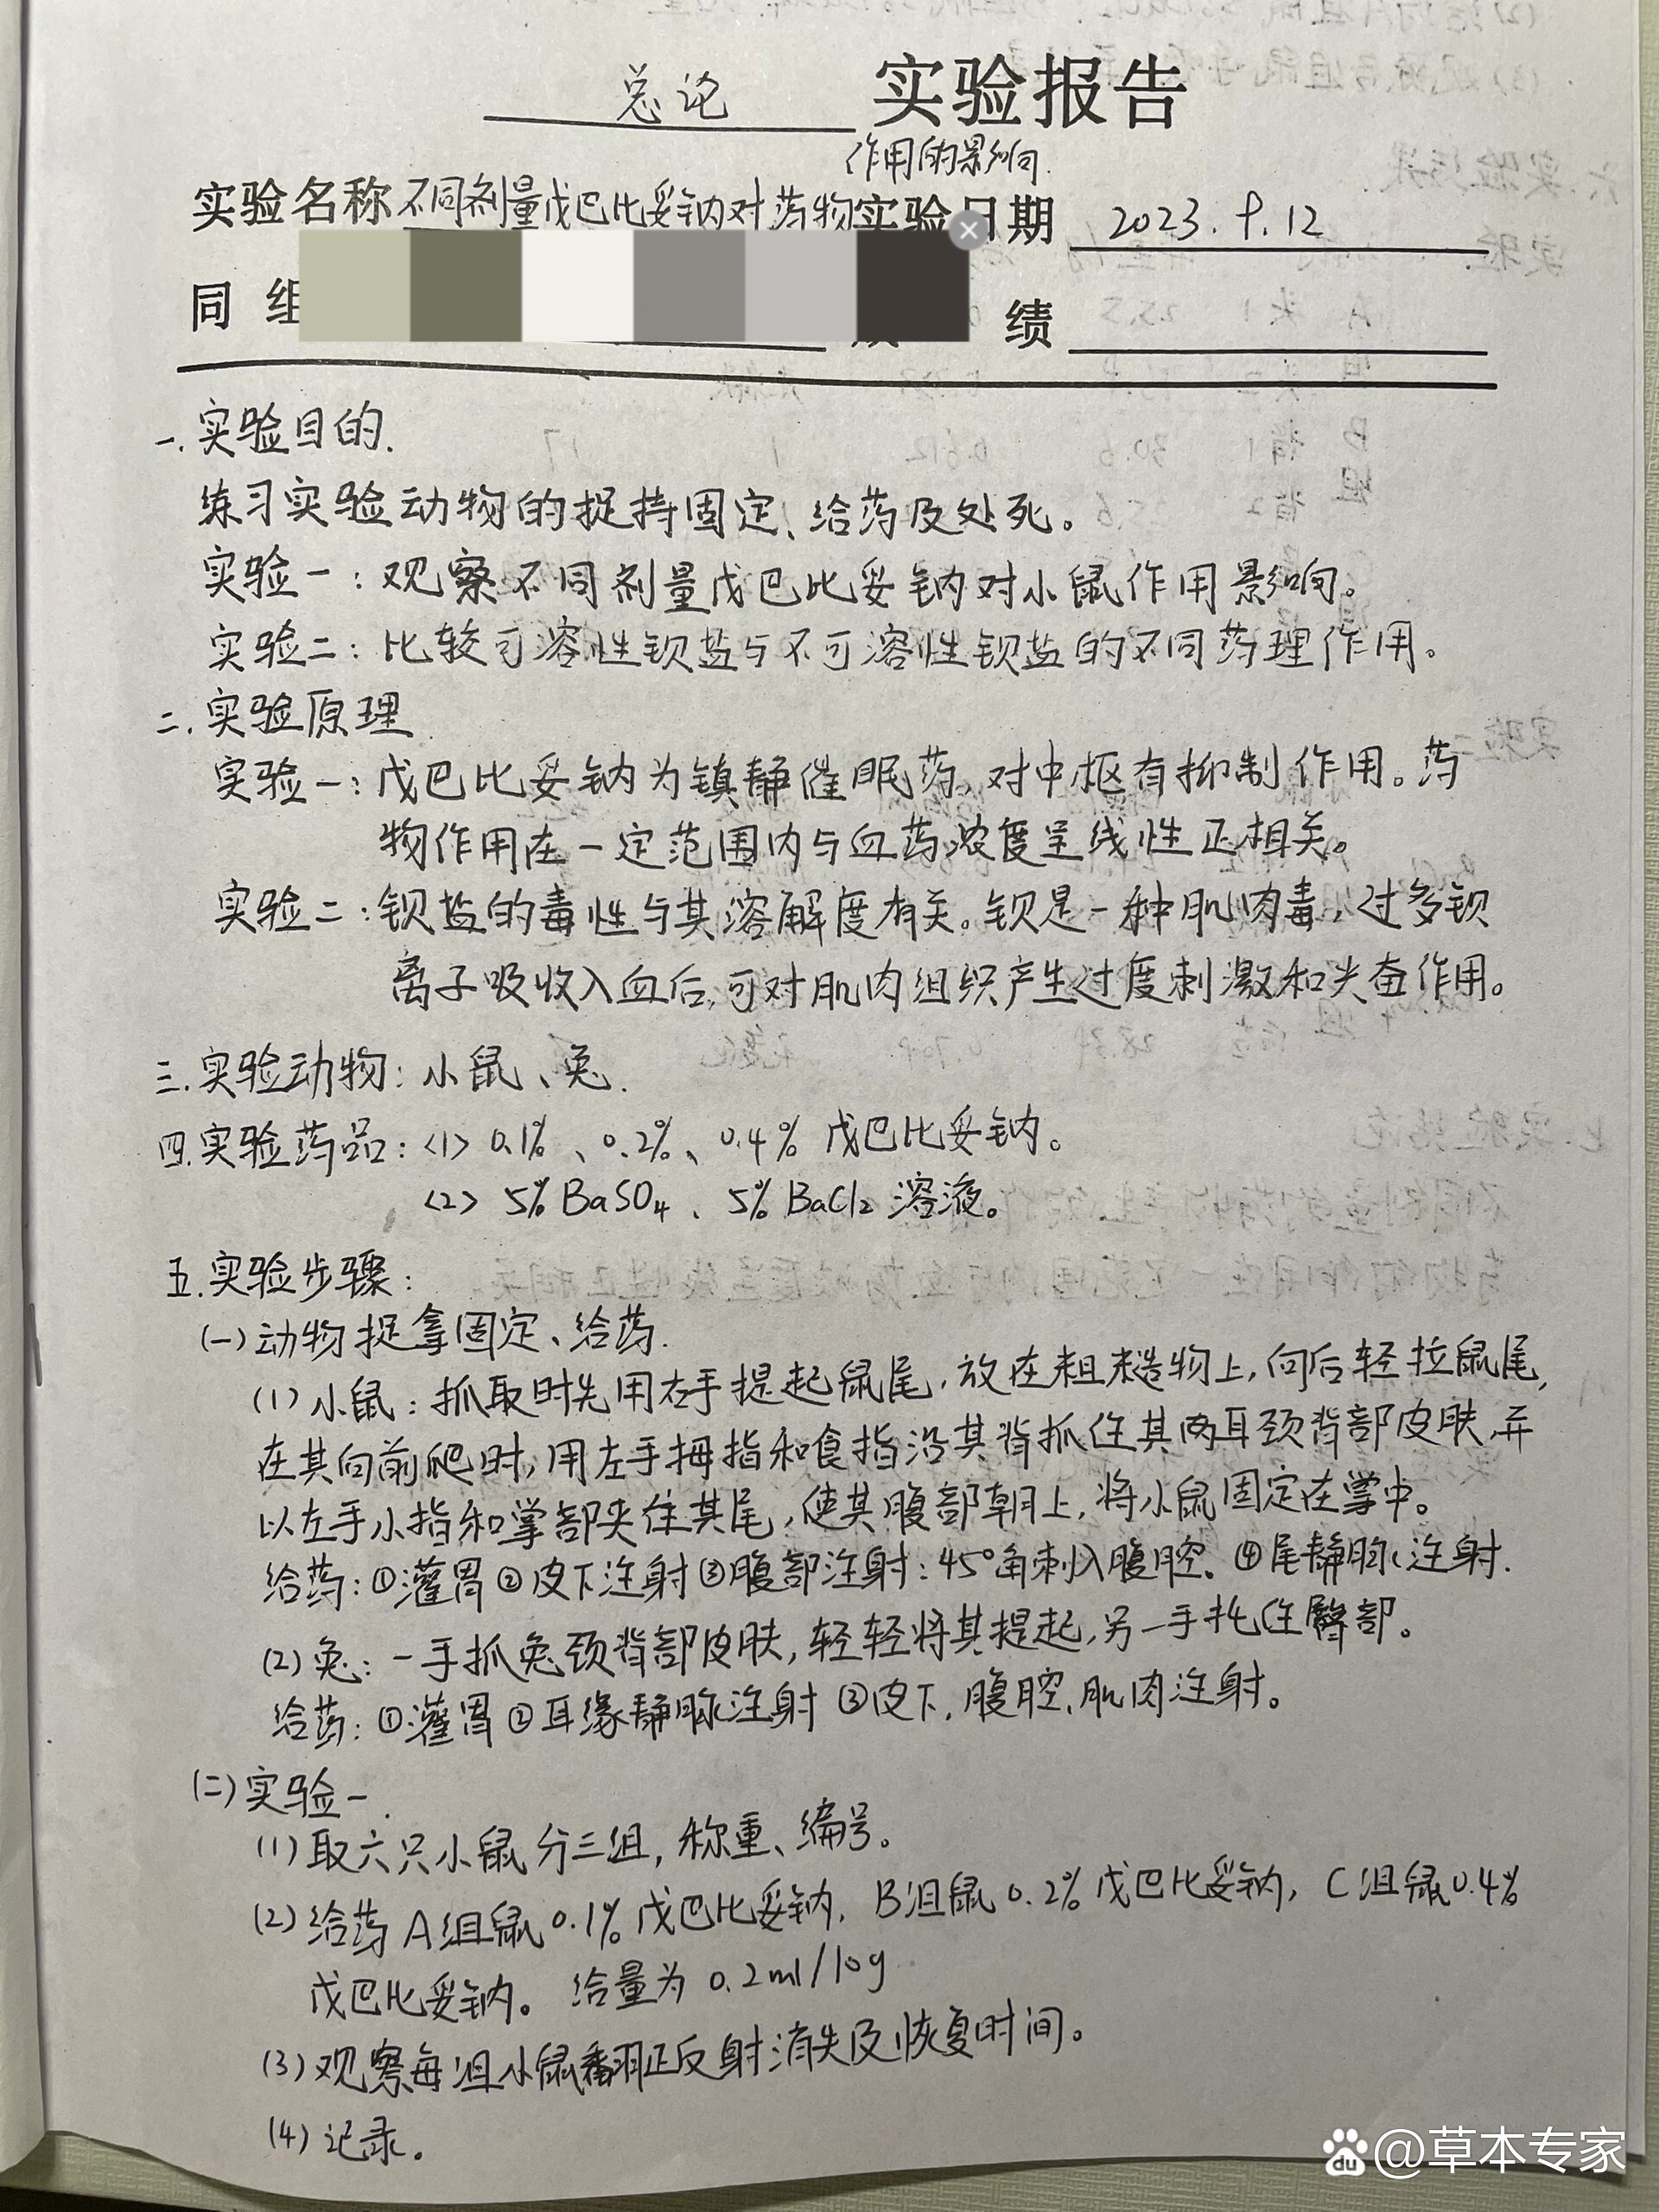 总论 实验报告
作用的影响
实验名称 不同剂量戊巴比妥钠对药物 实验日期 2023.9.12
同 组 绩
一.实验目的.
练习实验动物的捉持固定、给药及处死。
实验一:观察不同剂量戊巴比妥钠对小鼠作用影响。
实验二:比较可溶性钡盐与不可溶性钡盐的不同药理作用。
二.实验原理
实验一:戊巴比妥钠为镇静催眠药,对中枢有抑制作用。药
物作用在一定范围内与血药浓度呈线性正相关。
实验二:钡盐的毒性与其溶解度有关。钡是一种肌肉毒,过多钡
离子吸收入血后,可对肌肉组织产生过度刺激和兴奋作用。
三.实验动物:小鼠、兔.
四.实验药品:<1> 0.1%、0.2%、0.4% 戊巴比妥钠。
<2> 5% BaSO4、5% BaCl2 溶液。
五.实验步骤:
(一)动物捉拿固定、给药.
(1)小鼠:抓取时先用右手提起鼠尾,放在粗糙物上,向后轻拉鼠尾,
在其向前爬时,用左手拇指和食指沿其背抓住其两耳颈背部皮肤,并
以左手小指和掌部夹住其尾,使其腹部朝上,将小鼠固定在掌中。
给药:①灌胃②皮下注射③腹部注射:45°角刺入腹腔。④尾静脉注射.
(2)兔:一手抓兔颈背部皮肤,轻轻将其提起,另一手托住臀部。
给药:①灌胃②耳缘静脉注射③皮下,腹腔,肌肉注射。
(二)实验一.
(1)取六只小鼠分三组,称重、编号。
(2)给药A组鼠0.1%戊巴比妥钠,B组鼠0.2%戊巴比妥钠,C组鼠0.4%
戊巴比妥钠。给量为0.2ml/10g
(3)观察每组小鼠翻正反射消失及恢复时间。
(4)记录。
du @草本专家